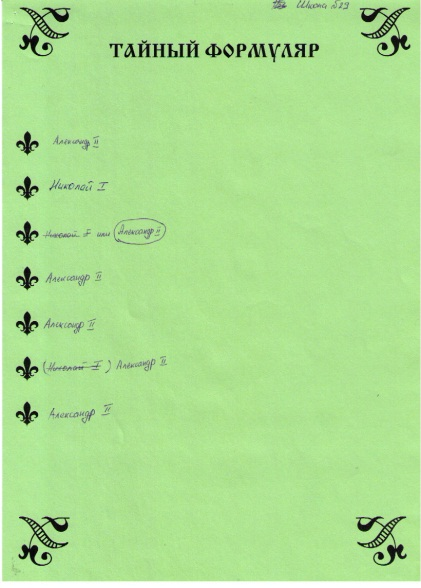 Школа 529
ТАЙНЫЙ ФОРМУЛЯР
Александр II
Николай I
Николай I или Александр II
Александр II
Александр II
(Николай I) Александр II
Александр II